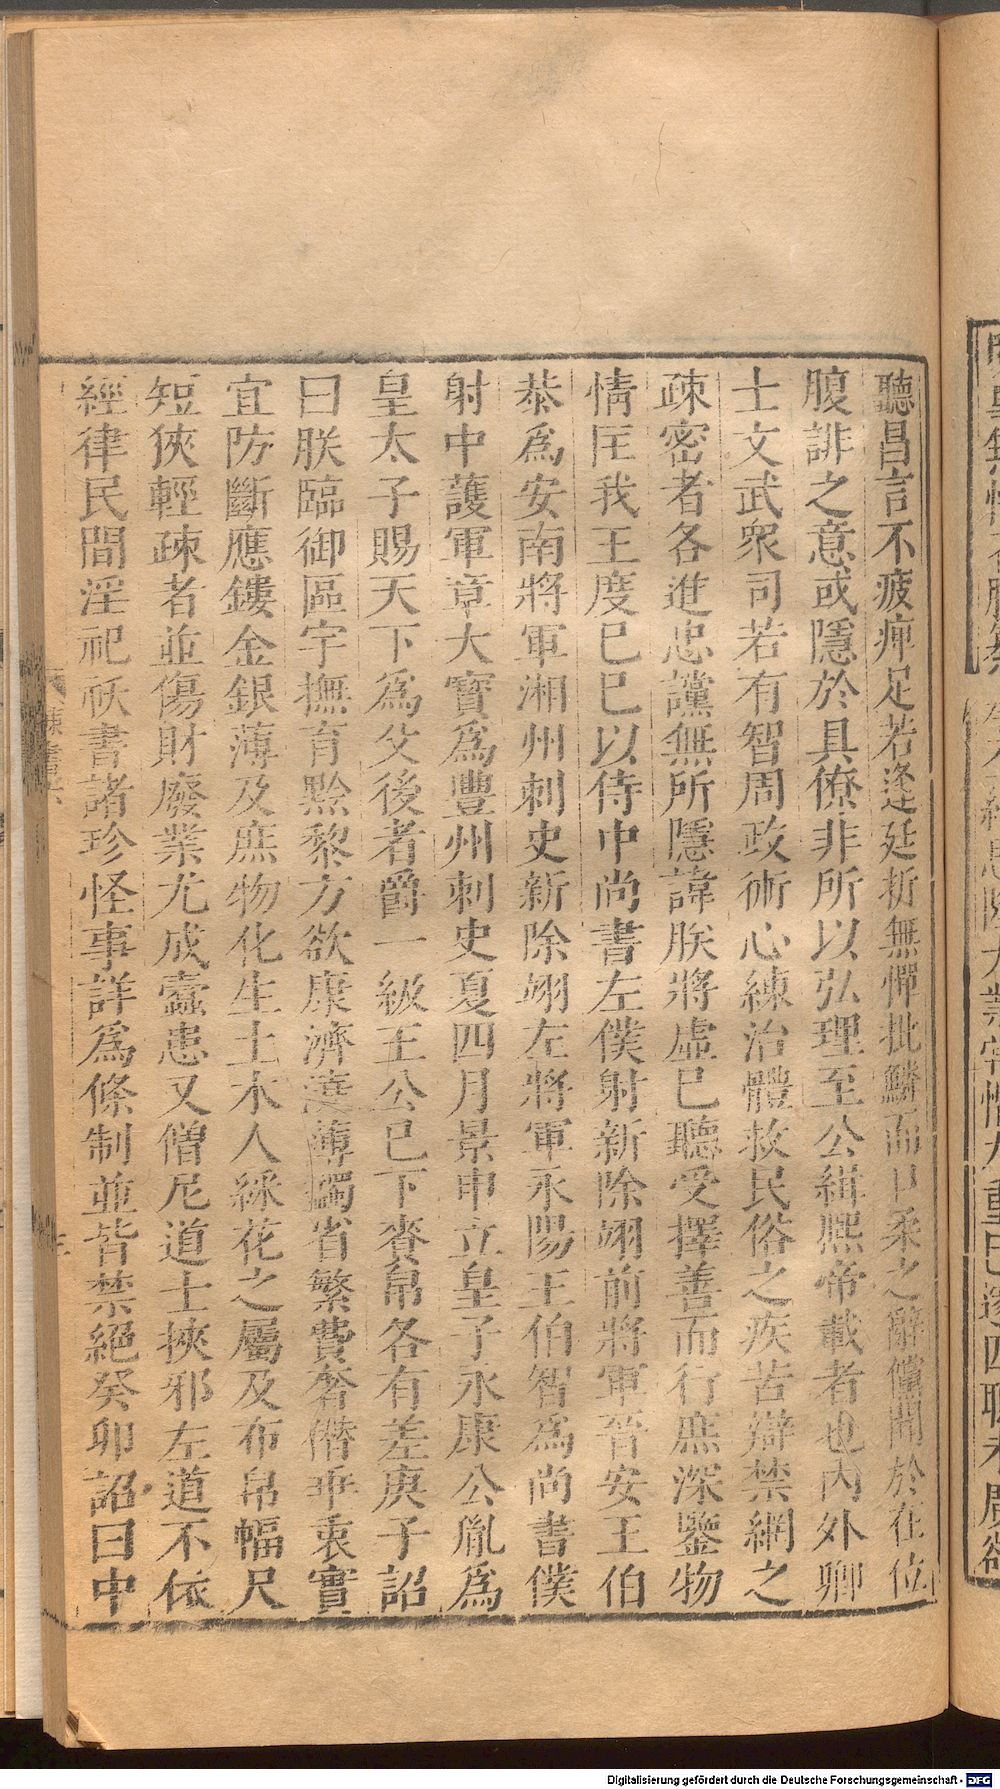 聽昌言不疲痺足若逄廷折無憚批鱗而口柔之辭儻聞於在位
腹誹之意或隱於具僚非所以弘理至公緝熙帝載者也內外卿
士文武衆司若有智周政術心練治體救民俗之疾苦辯禁網之
疎密者各進忠讜無所隱諱朕將虛已聽受擇善而行庶深鑒物
情匡我王度已巳以侍中尚書左僕射新除翊前將軍晉安王伯
恭爲安南將軍湘州刺史新除翊左將軍永陽王伯智爲尚書僕
射中護軍章大寶爲豐州刺史夏四月景申立皇子永康公胤爲
皇太子賜天下爲父後者爵一級王公已下賚帛各有差庚子詔
曰朕臨御區宇撫育黔黎方欲康濟澆薄蠲省繁費奢僭乖衷實
宜防斷應鏤金銀薄及庶物化生土木人綵花之屬及布帛幅尺
短狹輕疎者並傷財廢業尤成蠹患又僧尼道士挾邪左道不依
經律民間淫祀祅書諸珍怪事詳爲條制並皆禁絕癸卯詔曰中
陳書六
Digitalisierung gefördert durch die Deutsche Forschungsgemeinschaft - DFG